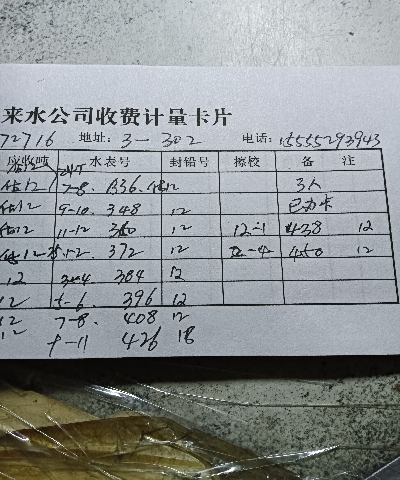 来水公司收费计量卡片
72716 地址: 3-302 电话: 15555293943
应收吨 水表号 封铅号 擦校 备 注
估12 7-8. 336. 估12 3人
估12 9-10. 348 12 已办卡
估12 11-12 360 12 12-1 438 12
1-2. 372 12 2-4 450 12
12 3-4 384 12
12 5-6 396 12
12 7-8. 408 12
12 9-11 426 18